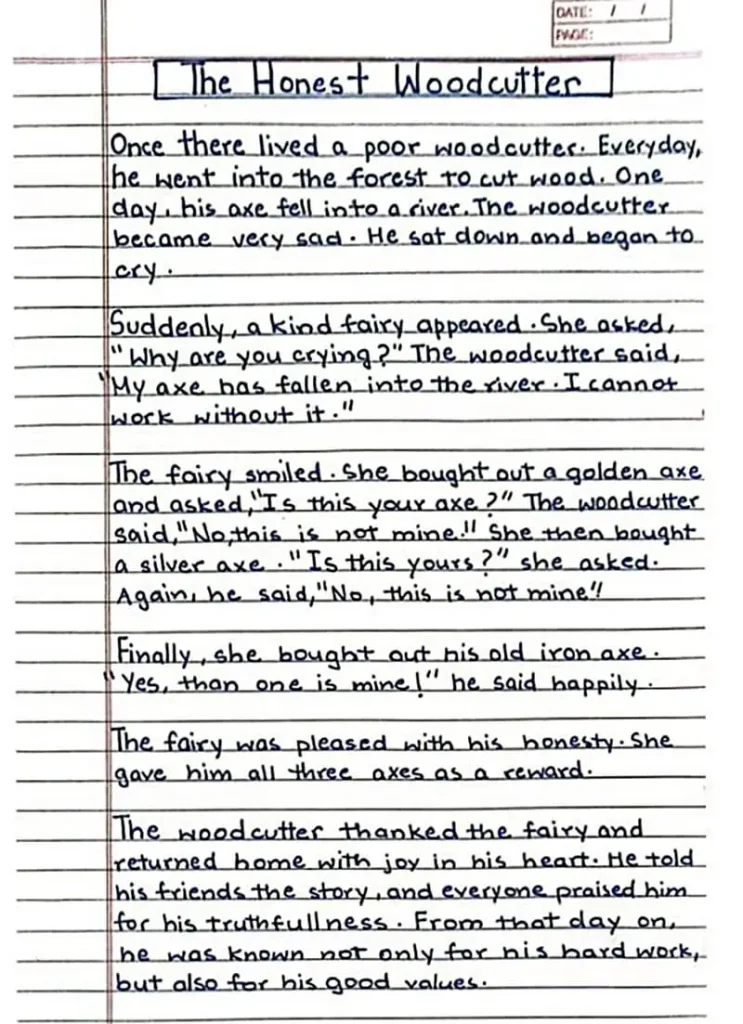 DATE: / /
PAGE:
The Honest Woodcutter
Once there lived a poor woodcutter. Everyday,
he went into the forest to cut wood. One
day, his axe fell into a river. The woodcutter
became very sad. He sat down and began to
cry.
Suddenly, a kind fairy appeared. She asked,
"Why are you crying?" The woodcutter said,
"My axe has fallen into the river. I cannot
work without it."
The fairy smiled. She bought out a golden axe
and asked, "Is this your axe?" The woodcutter
said, "No, this is not mine!" She then bought
a silver axe. "Is this yours?" she asked.
Again, he said, "No, this is not mine"!
Finally, she bought out his old iron axe.
"Yes, than one is mine!" he said happily.
The fairy was pleased with his honesty. She
gave him all three axes as a reward.
The woodcutter thanked the fairy and
returned home with joy in his heart. He told
his friends the story, and everyone praised him
for his truthfullness. From that day on,
he was known not only for his hard work,
but also for his good values.